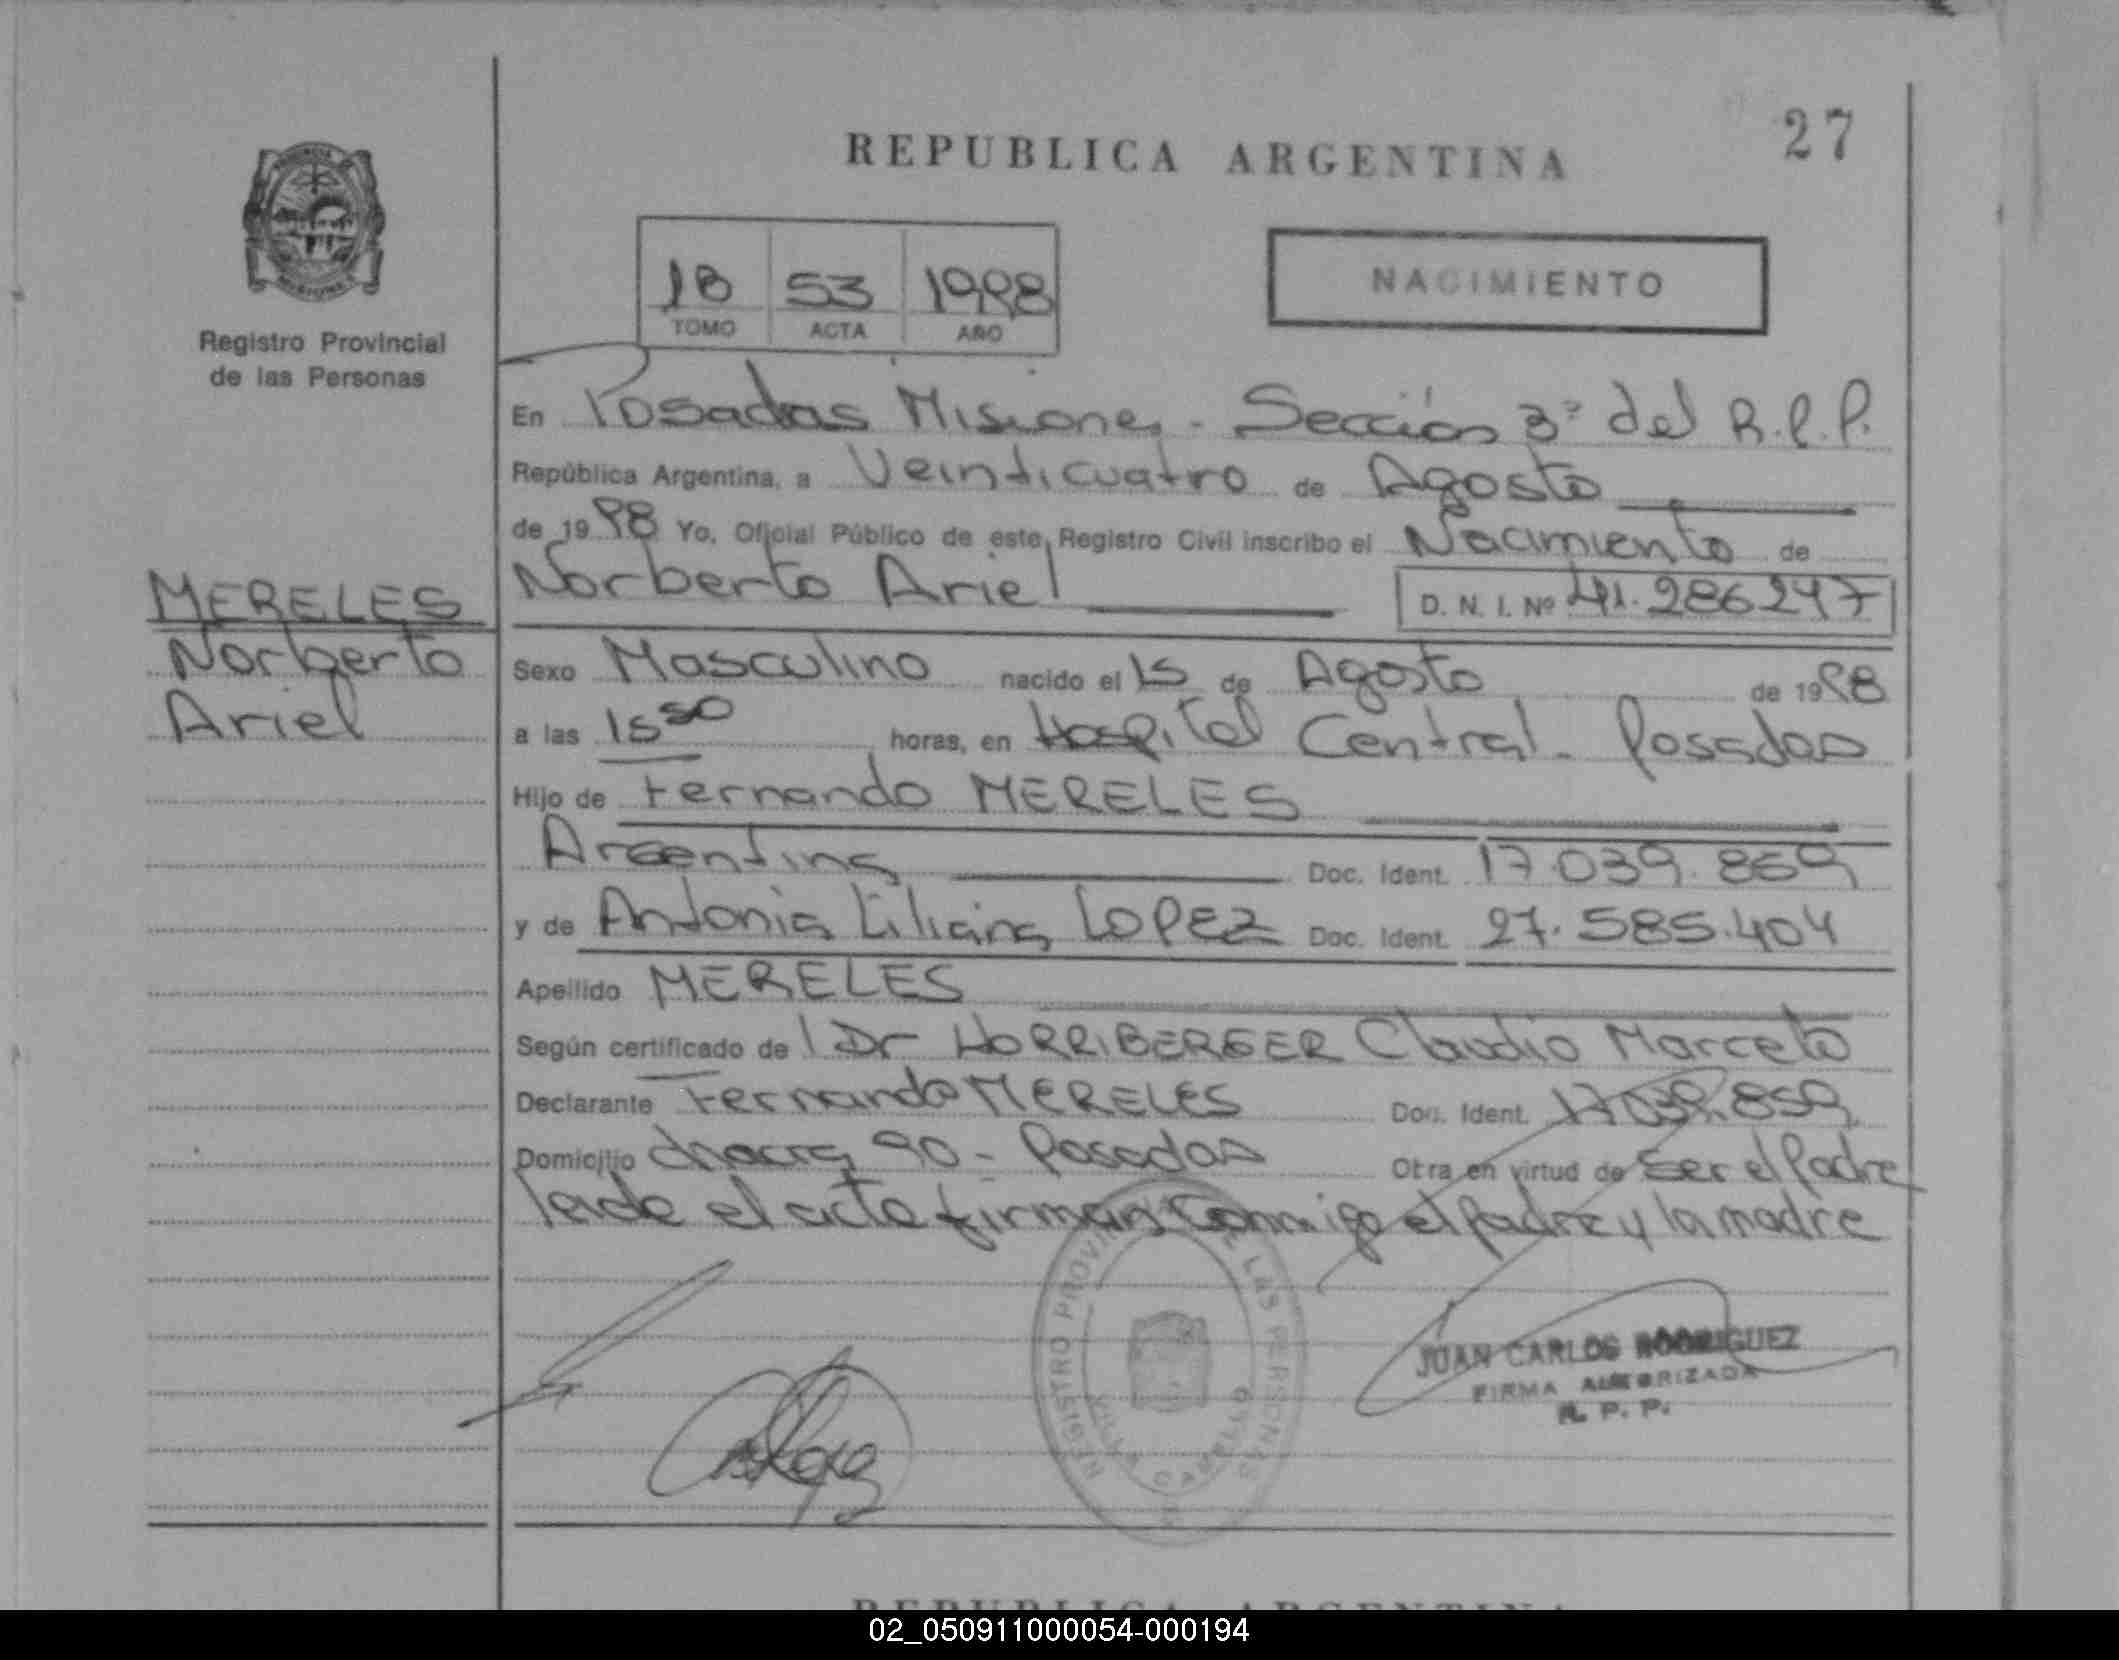 27
REPUBLICA ARGENTINA
18 53 1998
TOMO ACTA AÑO
NACIMIENTO
Registro Provincial
de las Personas
En Posadas Misiones - Sección 3ª del R.P.P.
República Argentina, a Veinticuatro de Agosto
de 1998 Yo, Oficial Público de este Registro Civil inscribo el Nacimiento de
Norberto Ariel D. N. I. Nº 41.286247
MERELES
Norberto
Ariel
Sexo Masculino nacido el 15 de Agosto de 1998
a las 15 50 horas, en Hospital Central - Posadas
Hijo de Fernando MERELES
Argentina Doc. Ident. 17.039.859
y de Antonia Liliana LOPEZ Doc. Ident. 27.585.404
Apellido MERELES
Según certificado de l Dr HORRIBERGER Claudio Marcelo
Declarante Fernando MERELES Doc. Ident. 17039.859
Domicilio chacra 90 - Posadas Obra en virtud de Ser el Padre
leida el acta firman conmigo el padre y la madre
REGISTRO PROVINCIAL DE LAS PERSONAS
VILLA CABELLO
JUAN CARLOS RODRIGUEZ
FIRMA AUTORIZADA
R. P. P.
REPUBLICA ARGENTINA
02_050911000054-000194